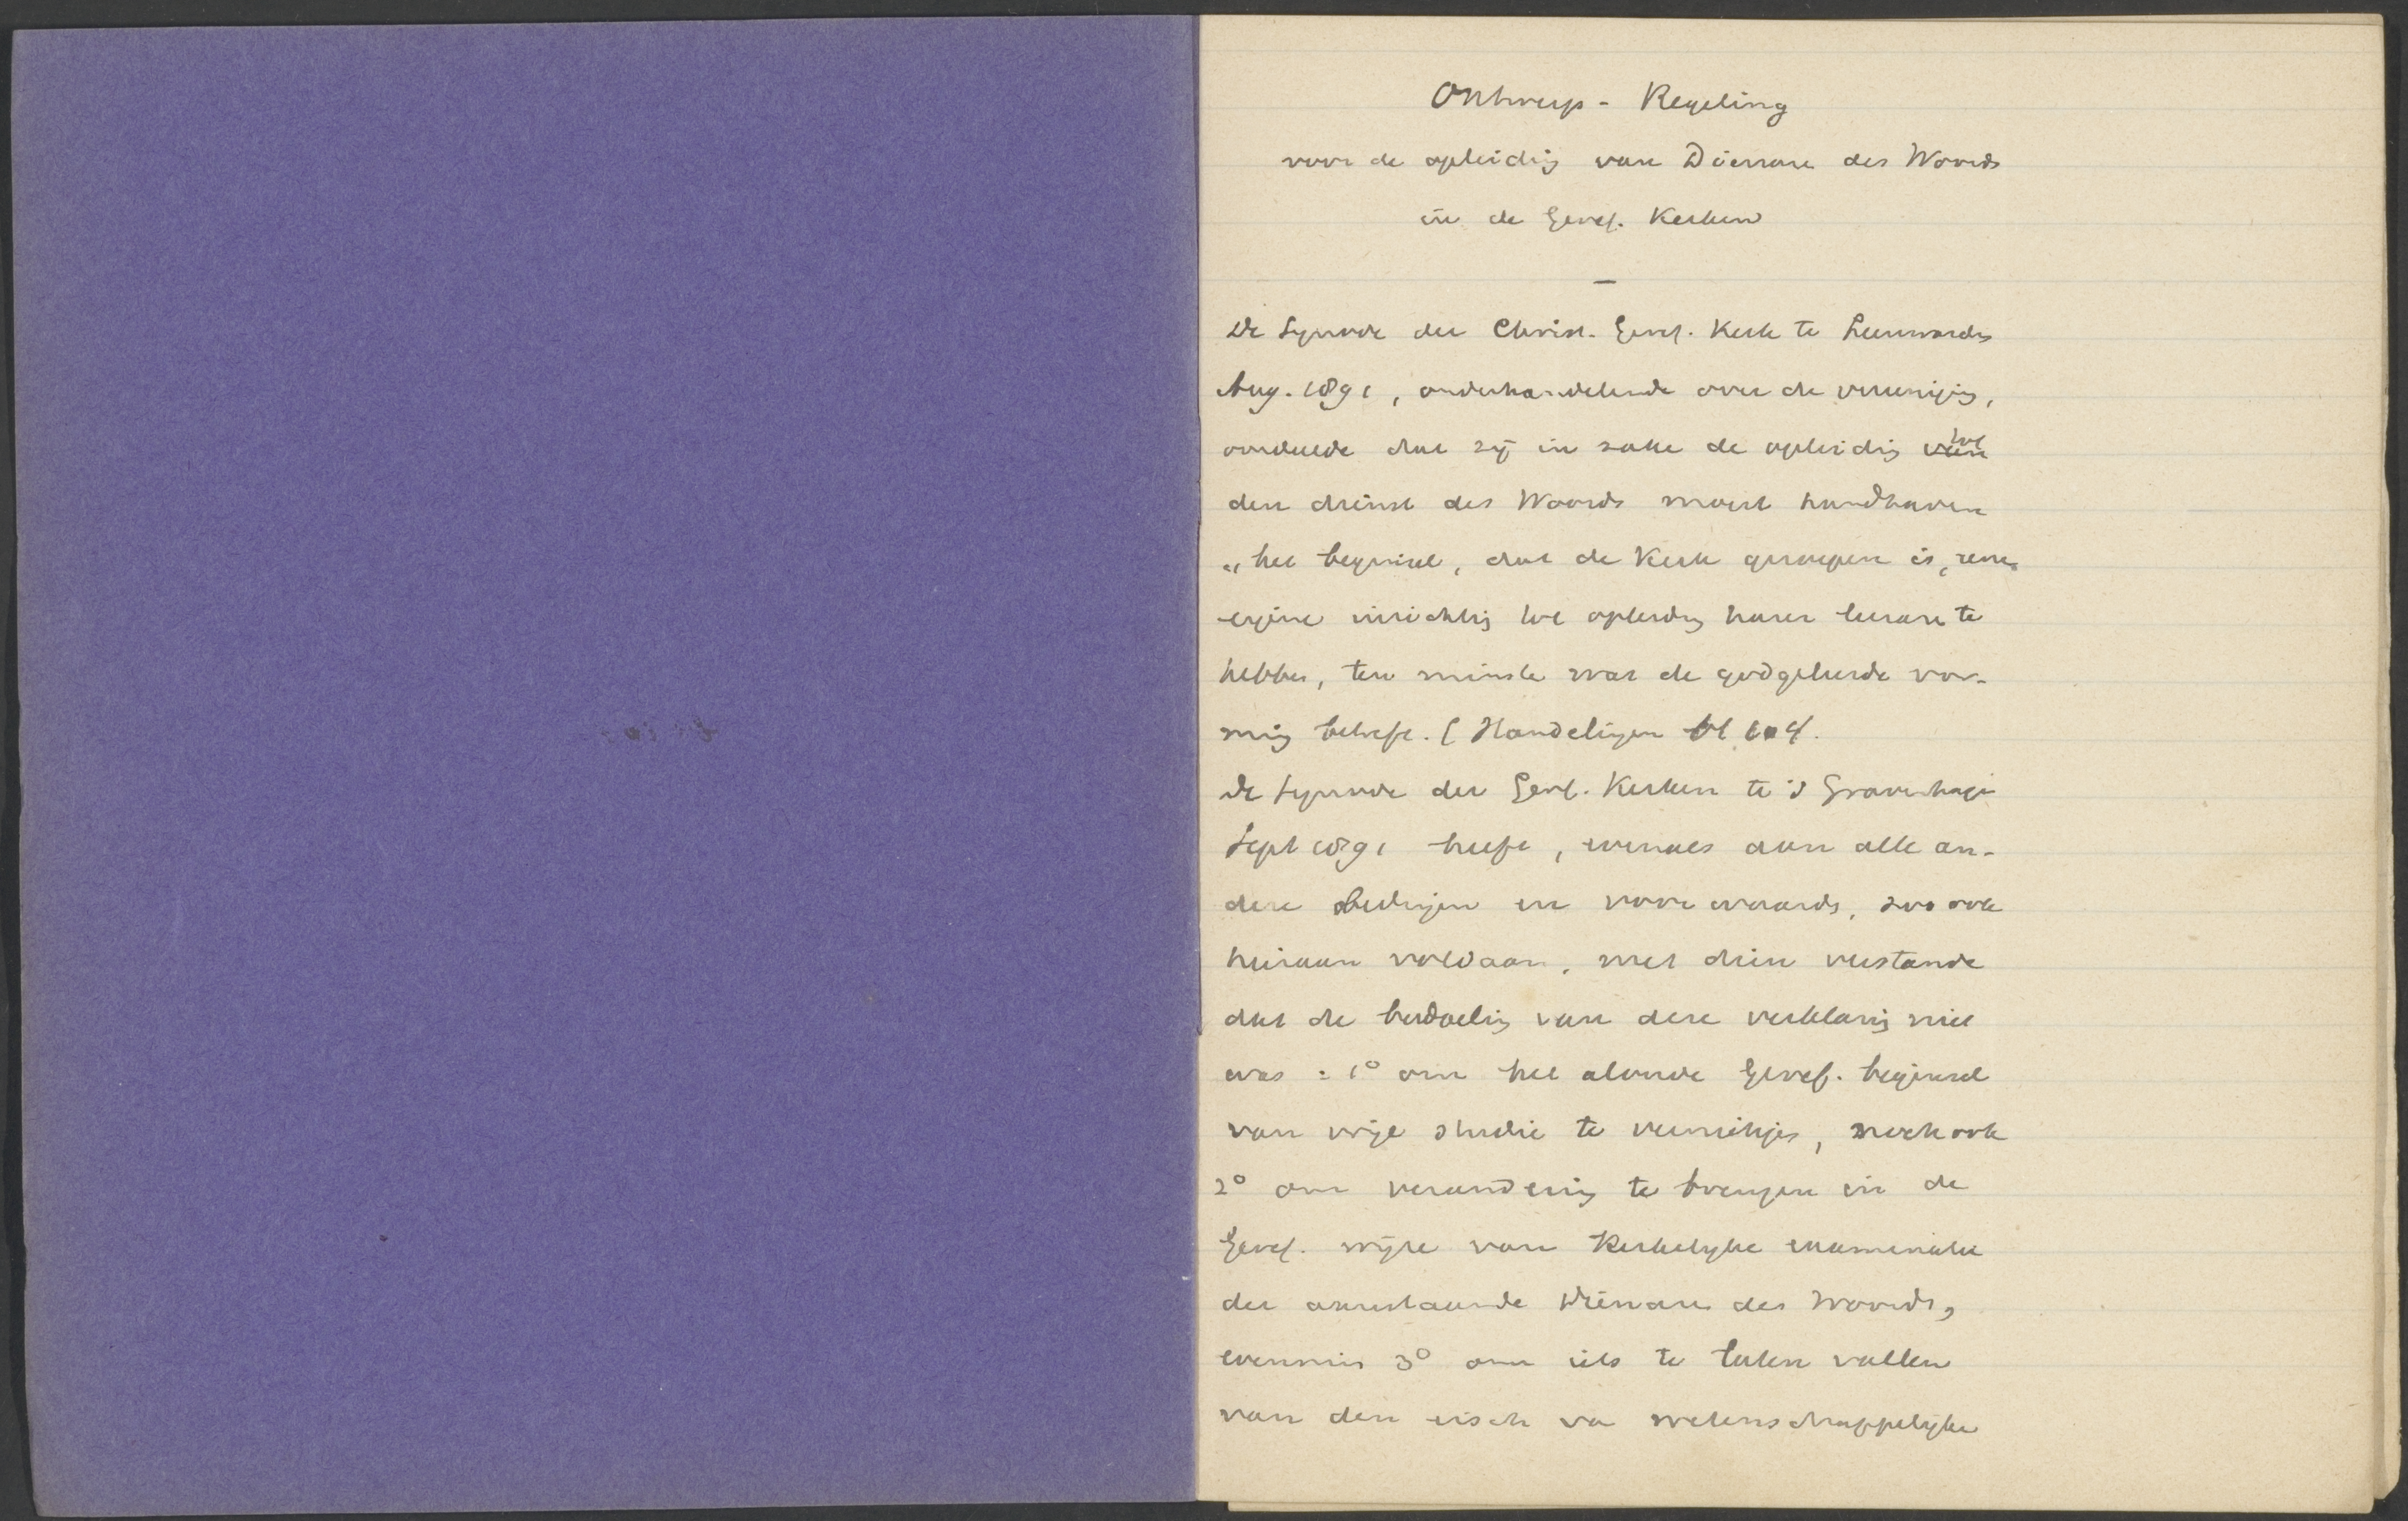 Ontwerp - Regeling
voor de opleiding van Dienaren des Woords
in de Geref. Kerken
De Synode der Christ. Geref. Kerk te Leeuwarden
Aug. 1891, onderhandelende over de vereeniging,
oordeelde dat zij in zake de opleiding van tot
den dienst des Woords moest handhaven
"het beginsel, dat de Kerk geroepen is, eene
eigene inrichting tot opleiding harer leeraren te
hebben, ten minste wat de godgeleerde vor-
ming betreft. (Handelingen bl 104.
De Synode der Geref. Kerken te 's Gravenhage
Sept 1891 heeft, evenals aan alle an-
dere bedingen en voorwaarden, zoo ook
hieraan voldaan, met dien verstande
dat de bedoeling van deze verklaring niet
was: 1° om het aloude Geref. beginsel
van vrije studie te vernietigen, noch ook
2° om verandering te brengen in de
Geref. wijze van Kerkelijke examinatie
der aanstaande Dienaren des Woords,
evenmin 3° om iets te laten vallen
van den eisch van wetenschappelijke